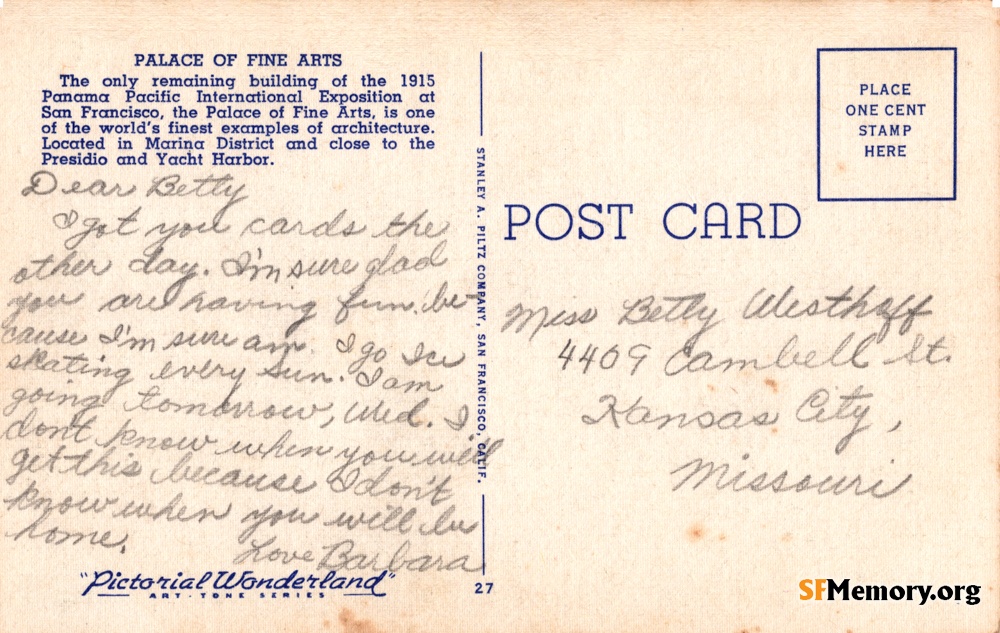 PALACE OF FINE ARTS
The only remaining building of the 1915
Panama Pacific International Exposition at
San Francisco, the Palace of Fine Arts, is one
of the world's finest examples of architecture.
Located in Marina District and close to the
Presidio and Yacht Harbor.
Dear Betty
I got you cards the
other day. I'm sure glad
you are having fun. be-
cause I'm sure am. I go Ice
skating every Sun. I am
going tomorrow, Wed. I
dont know when you will
get this because I don't
know when you will be
home.
Love Barbara
"Pictorial Wonderland"
ART-TONE SERIES
STANLEY A. PILTZ COMPANY, SAN FRANCISCO, CALIF.
27
PLACE
ONE CENT
STAMP
HERE
POST CARD
Miss Betty Westhoff
4409 Cambell St.
Kansas City,
Missouri
SFMemory.org